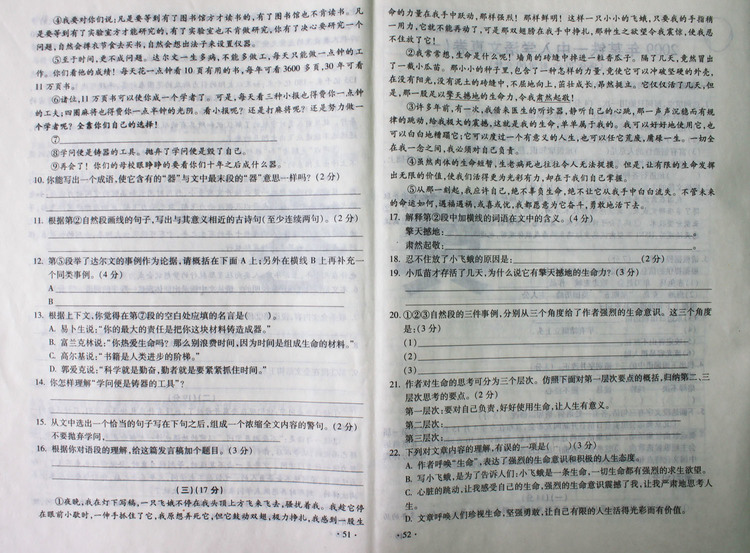 ④我要对你们说:凡是要等到有了图书馆方才读书的,有了图书馆也不肯读书。凡
是要等到有了实验室方才研究的,有了实验室也不肯做研究。你有了决心要研究一个
问题,自然会撙衣节食去买书,自然会想出法子来设置仪器。
⑤至于时间,更不成问题。达尔文一生多病,不能多做工,每天只能做一点钟的工
作。你们看他的成绩!每天花一点钟看10页有用的书,每年可看3600多页,30年可看
11万页书。
⑥诸位,11万页书可以使你成一个学者了。可是,每天看三种小报也得费你一点钟
的工夫;四圈麻将也得费你一点半钟的光阴。看小报呢?还是打麻将呢?还是努力做一
个学者呢?全靠你们自己的选择!
⑦
⑧学问便是铸器的工具。抛弃了学问便是毁了自己。
⑨再会了!你们的母校眼睁睁的要看你们十年之后成什么器。
10. 你能写出一个成语,使它含有的“器”与文中最末段的“器”意思一样吗?(2分)
11. 根据第②自然段画线的句子,写出与其意义相近的古诗句(至少连续两句)。(2分)
12. 第⑤段举了达尔文的事例作为论据,请概括在下面A上;另外在横线B上再补充一
个同类事例。(4分)
A
B
13. 根据上下文,你觉得在第⑦段的空白处应填的名言是( )。
A. 易卜生说:“你的最大的责任是把你这块材料铸造成器。”
B. 富兰克林说:“你热爱生命吗?那么别浪费时间,因为时间是组成生命的材料。”
C. 高尔基说:“书籍是人类进步的阶梯。”
D. 郭爱克说:“科学就是勤奋,勤者就是要紧紧抓住时间。”
14. 你怎样理解“学问便是铸器的工具”?
15. 从文中选出一个恰当的句子写在下句之后,组成一个浓缩全文内容的警句。(2分)
不要抛弃学问,
16. 根据你对语段的理解,给这篇发言稿加个题目。(3分)
(三)(17分)
①夜晚,我在灯下写稿,一只飞蛾不停在我头顶上方飞来飞去,骚扰着我。我趁它停
在眼前小歇时,一伸手抓住了它,我原想弄死它,但它鼓动双翅,极力挣扎,我感到一股生
· 51 ·
命的力量在我手中跃动,那样强烈!那样鲜明!这样一只小小的飞蛾,只要我的手指稍
一用力,它就不能再动了,可是那双翅膀在我手中挣扎,那种生之欲望令我震惊,使我忍
不住放了它!
②我常常想,生命是什么呢!墙角的砖缝中掉进一粒香瓜子。隔了几天,竟然冒出
了一截小瓜苗。那小小的种子里,包含了一种怎样的力量,竟使它可以冲破坚硬的外壳,
在没有阳光,没有泥土的砖缝中,不屈地向上,茁壮成长,昂然挺立。它仅仅活了几天,但
是,那一股足以擎天撼地的生命力,令我肃然起敬!
③许多年前,有一次,我借来医生的听诊器,静听自己的心跳,那一声声沉稳而有规
律的跳动,给我极大的震撼,这就是我的生命,单单属于我的。我可以好好地使用它,也
可以白白地糟蹋它;它可以度过一个有意义的人生,也可以任它荒废,庸碌一生。一切全
在我一念之间,我必须对自己负责。
④虽然肉体的生命短暂,生老病死也往往令人无法捉摸。但是,让有限的生命发挥
出无限的价值,使我们活得更为光彩有力,却在于我们自己掌握。
⑤从那一刻起,我应许自己,绝不辜负生命,绝不让它从我手中白白流失。不管未来
的命运如何,遇福遇祸,或喜或忧,我都愿意为它奋斗,勇敢地活下去。
17. 解释第②段中加横线的词语在文中的含义。(4分)
擎天撼地:。
肃然起敬:。
18. 忍不住放了小飞蛾的原因是:。(2分)
19. 小瓜苗才存活了几天,为什么说它有擎天撼地的生命力?(3分)
20. ①②③自然段的三件事例,分别从三个角度给了作者强烈的生命意识。这三个角度
是:(3分)
(1)
(2)
(3)
21. 作者对生命的思考可分为三个层次。仿照下面对第一层次要点的概括,归纳第二、三
层次思考的要点。(2分)
第一层次:要对自己负责,好好使用生命,让人生有意义。
第二层次:
第三层次:
22. 下列对文章内容的理解,有误的一项是( )(3分)
A. 作者呼唤“生命”,表达了强烈的生命意识和积极的人生态度。
B. 写小飞蛾,是为了告诉人们:小飞蛾是一条生命,一切生命都有强烈的求生欲望。
C. 心脏的跳动,让我感受自己的生命,强烈的生命意识震撼了我,让我严肃地思考人
生。
D. 文章呼唤人们珍视生命,坚强勇敢,让自己有限的人生活得光彩而有价值。
· 52 ·